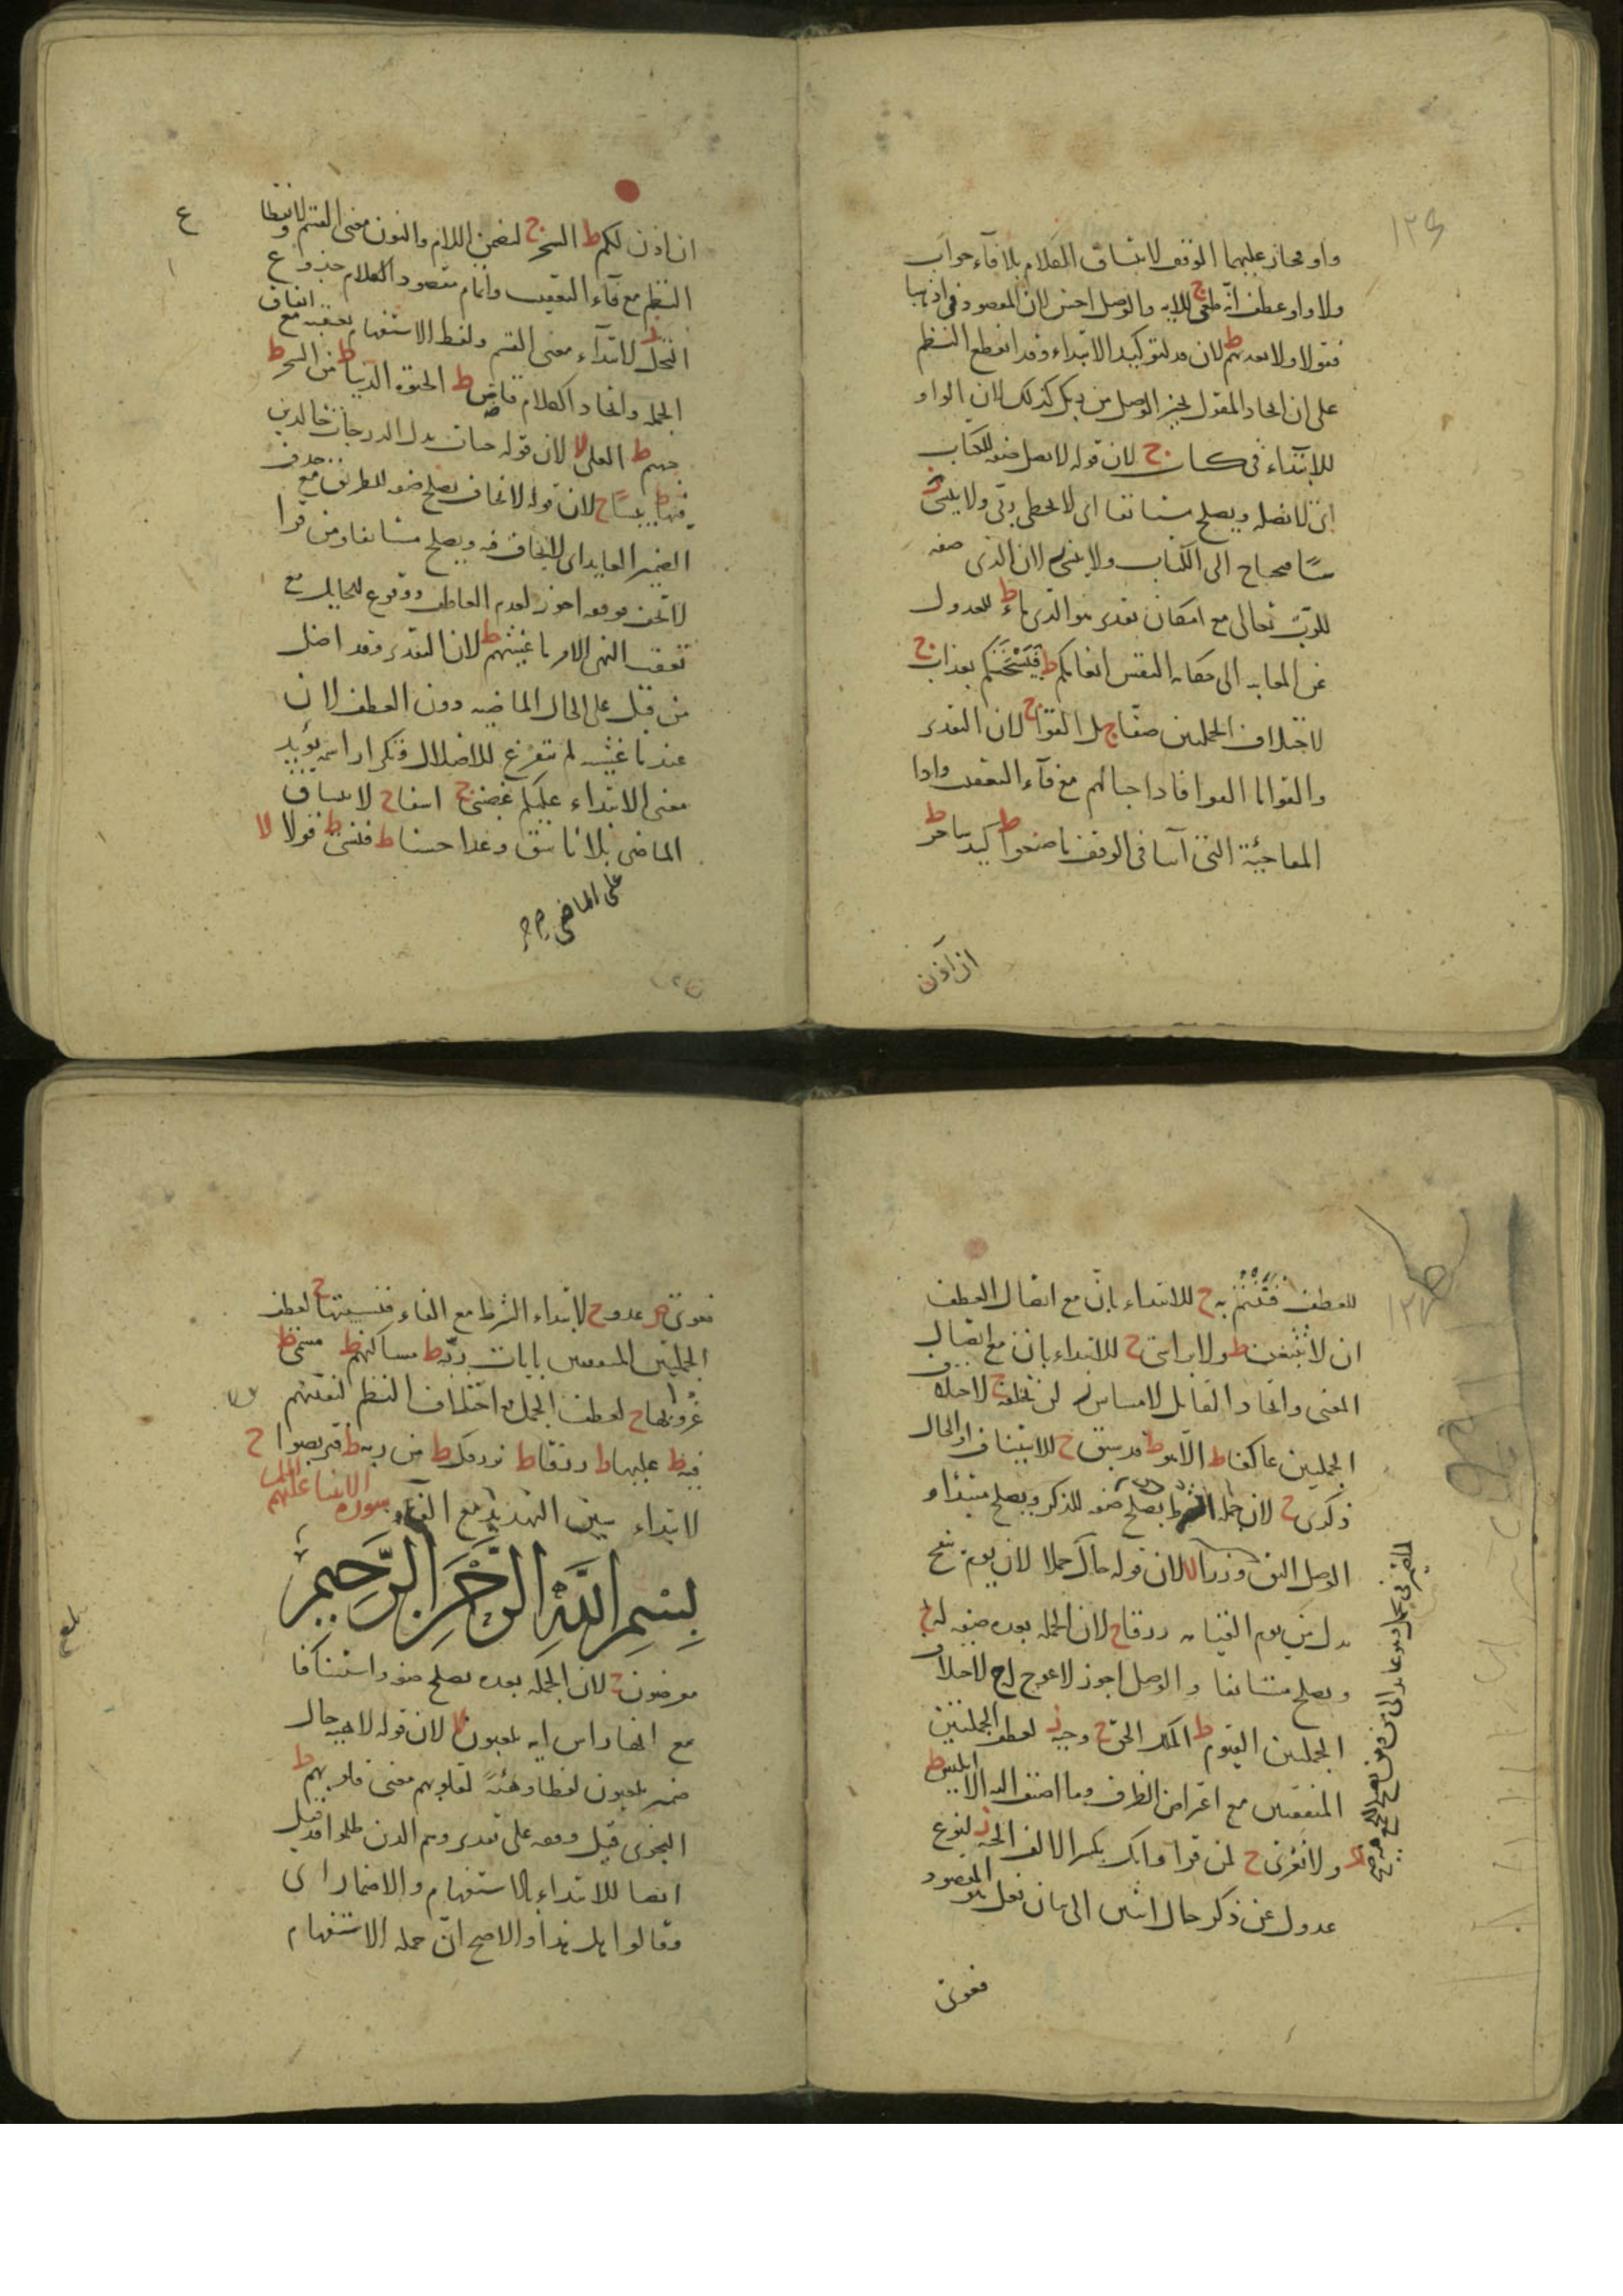 ١٢٤
واو مجاز عليهما الوقف لاتساق الكلام بلا فاء جواب
ولا واو عطف انه طغى ج للاية والوصل احسن لان المقصود في اذهبا
فقولا ولا تعذبهم ط لان قد لتوكيد الابتداء وقد انقطع النظم
على ان اتحاد المقول يجيز الوصل من ربك كذلك لان الواو
للابتداء في كتاب ج لان قوله لا يضل صفة للكتاب
اي لا يضله ويصلح مستانفا اي لا يخطى ربي ولا ينسى
محتاج الى الكتاب ولا ينسى لا لان الذي صفة
للرب تعالى مع امكان تقدير هو الذي ماء ط للعدول
عن المغايبة الى حكاية النفس انعامكم ط فيسحتكم بعذاب ج
لاختلاف الجملتين صفا ج بل القوا ج لان التقدير
والقوا فاذا حبالهم مع فاء التعقيب واذا
المفاجئة التي في الوقف ما صنعوا ط كيد ساحر ط
ان آذن
ان اذن لكم ط السحر ج لتضمن اللام والنون معنى القسم ولانقطاع
النظم مع فاء التعقيب واتمام مقصود الكلام جذوع
النخل ز لابتداء معنى القسم ولفظ الاستفهام يعقبه مع اتفاق
الجملة واتحاد الكلام قاض ط الحيوة الدنيا ط من السحر ط
جهنم ط العلى لا لان قوله جنات بدل الدرجات خالدين
فيها ط يبسا ج لان قوله لا تخاف يصلح صفة للطريق مع حذف
الضمير العايد اي لا تخاف فيه ويصلح مستانفا ومن قرا
لا تخف فوقفه اجوز لعدم العاطف ووقوع الحايل مع
تعقب النهي الامر ما غشيهم ط لان التقدير وقد اضل
من قبل على الحال الماضيه دون العطف لان
عند ما غشيه لم يتفرغ للاضلال وتكرار اسمه يؤيد
معنى الابتداء عليكم غضبي ج اسفا ج لاتساق
الماضي بلا ناسق وعدا حسنا ط فنسي ط قولا لا
على الماضي
للعطف فتنتم به ج للابتداء بان مع اتصال العطف
ان لا تتبعن ط ولا براسي ج للابتداء بان مع اتصال
المعنى واتحاد القايل لا مساس لن تخلفه ج لاختلاف
الجملتين عاكفا ط الا هو ط قد سبق ج للاستيناف او الحال
ذكرى ج لان جملة الشرط يصلح صفة للذكر ويصلح مبتدا و
الوصل وزرا لا لان قوله حال حملا لان يوم ينفخ
بدل من يوم القيامه زرقا ج لان الجملة بعده صفة له
ويصلح مستانفا والوصل اجوز لا عوج له ج لاختلاف
الجملتين القيوم ط الملك الحق ج وحيه ز لعطف الجملتين
المتفقتين مع اعتراض الظرف وما اضيف اليه الا ابليس ط
ولا تعرى ج لمن قرا وانك بكسر الالف الجنة ز لنوع
عدول عن ذكر حال اثنين الى بيان فعل هو المقصود
فغوى
فغوى عدو ج لابتداء الشرط مع الفاء فنسيتها ج لعطف
الجملتين المتفقتين بايات ربه ط مساكنهم ط مسمى ط
غروبها ج لعطف الجمل مع اختلاف النظم لنفتنهم
فيه ط عليها ط رزقا ط نرزقك ط من ربه ط فتربصوا ج
لابتداء سين التهديد مع الفاء
سورة الانبيا عليهم السلم
بسم الله الرحمن الرحيم
معرضون ج لان الجملة بعده يصلح صفة واستينافا
مع انها راس ايه يلعبون لا لان قوله لاهية حال
ضمير يلعبون لفظا وهيئة لقلوبهم معنى قلوبهم ط
النجوى قيل وقفه على تقدير وهم الذين ظلموا وقد قيل
ايضا للابتداء بالاستفهام والاضمار اي
وقالوا هل هذا والاصح ان جمله الاستفهام